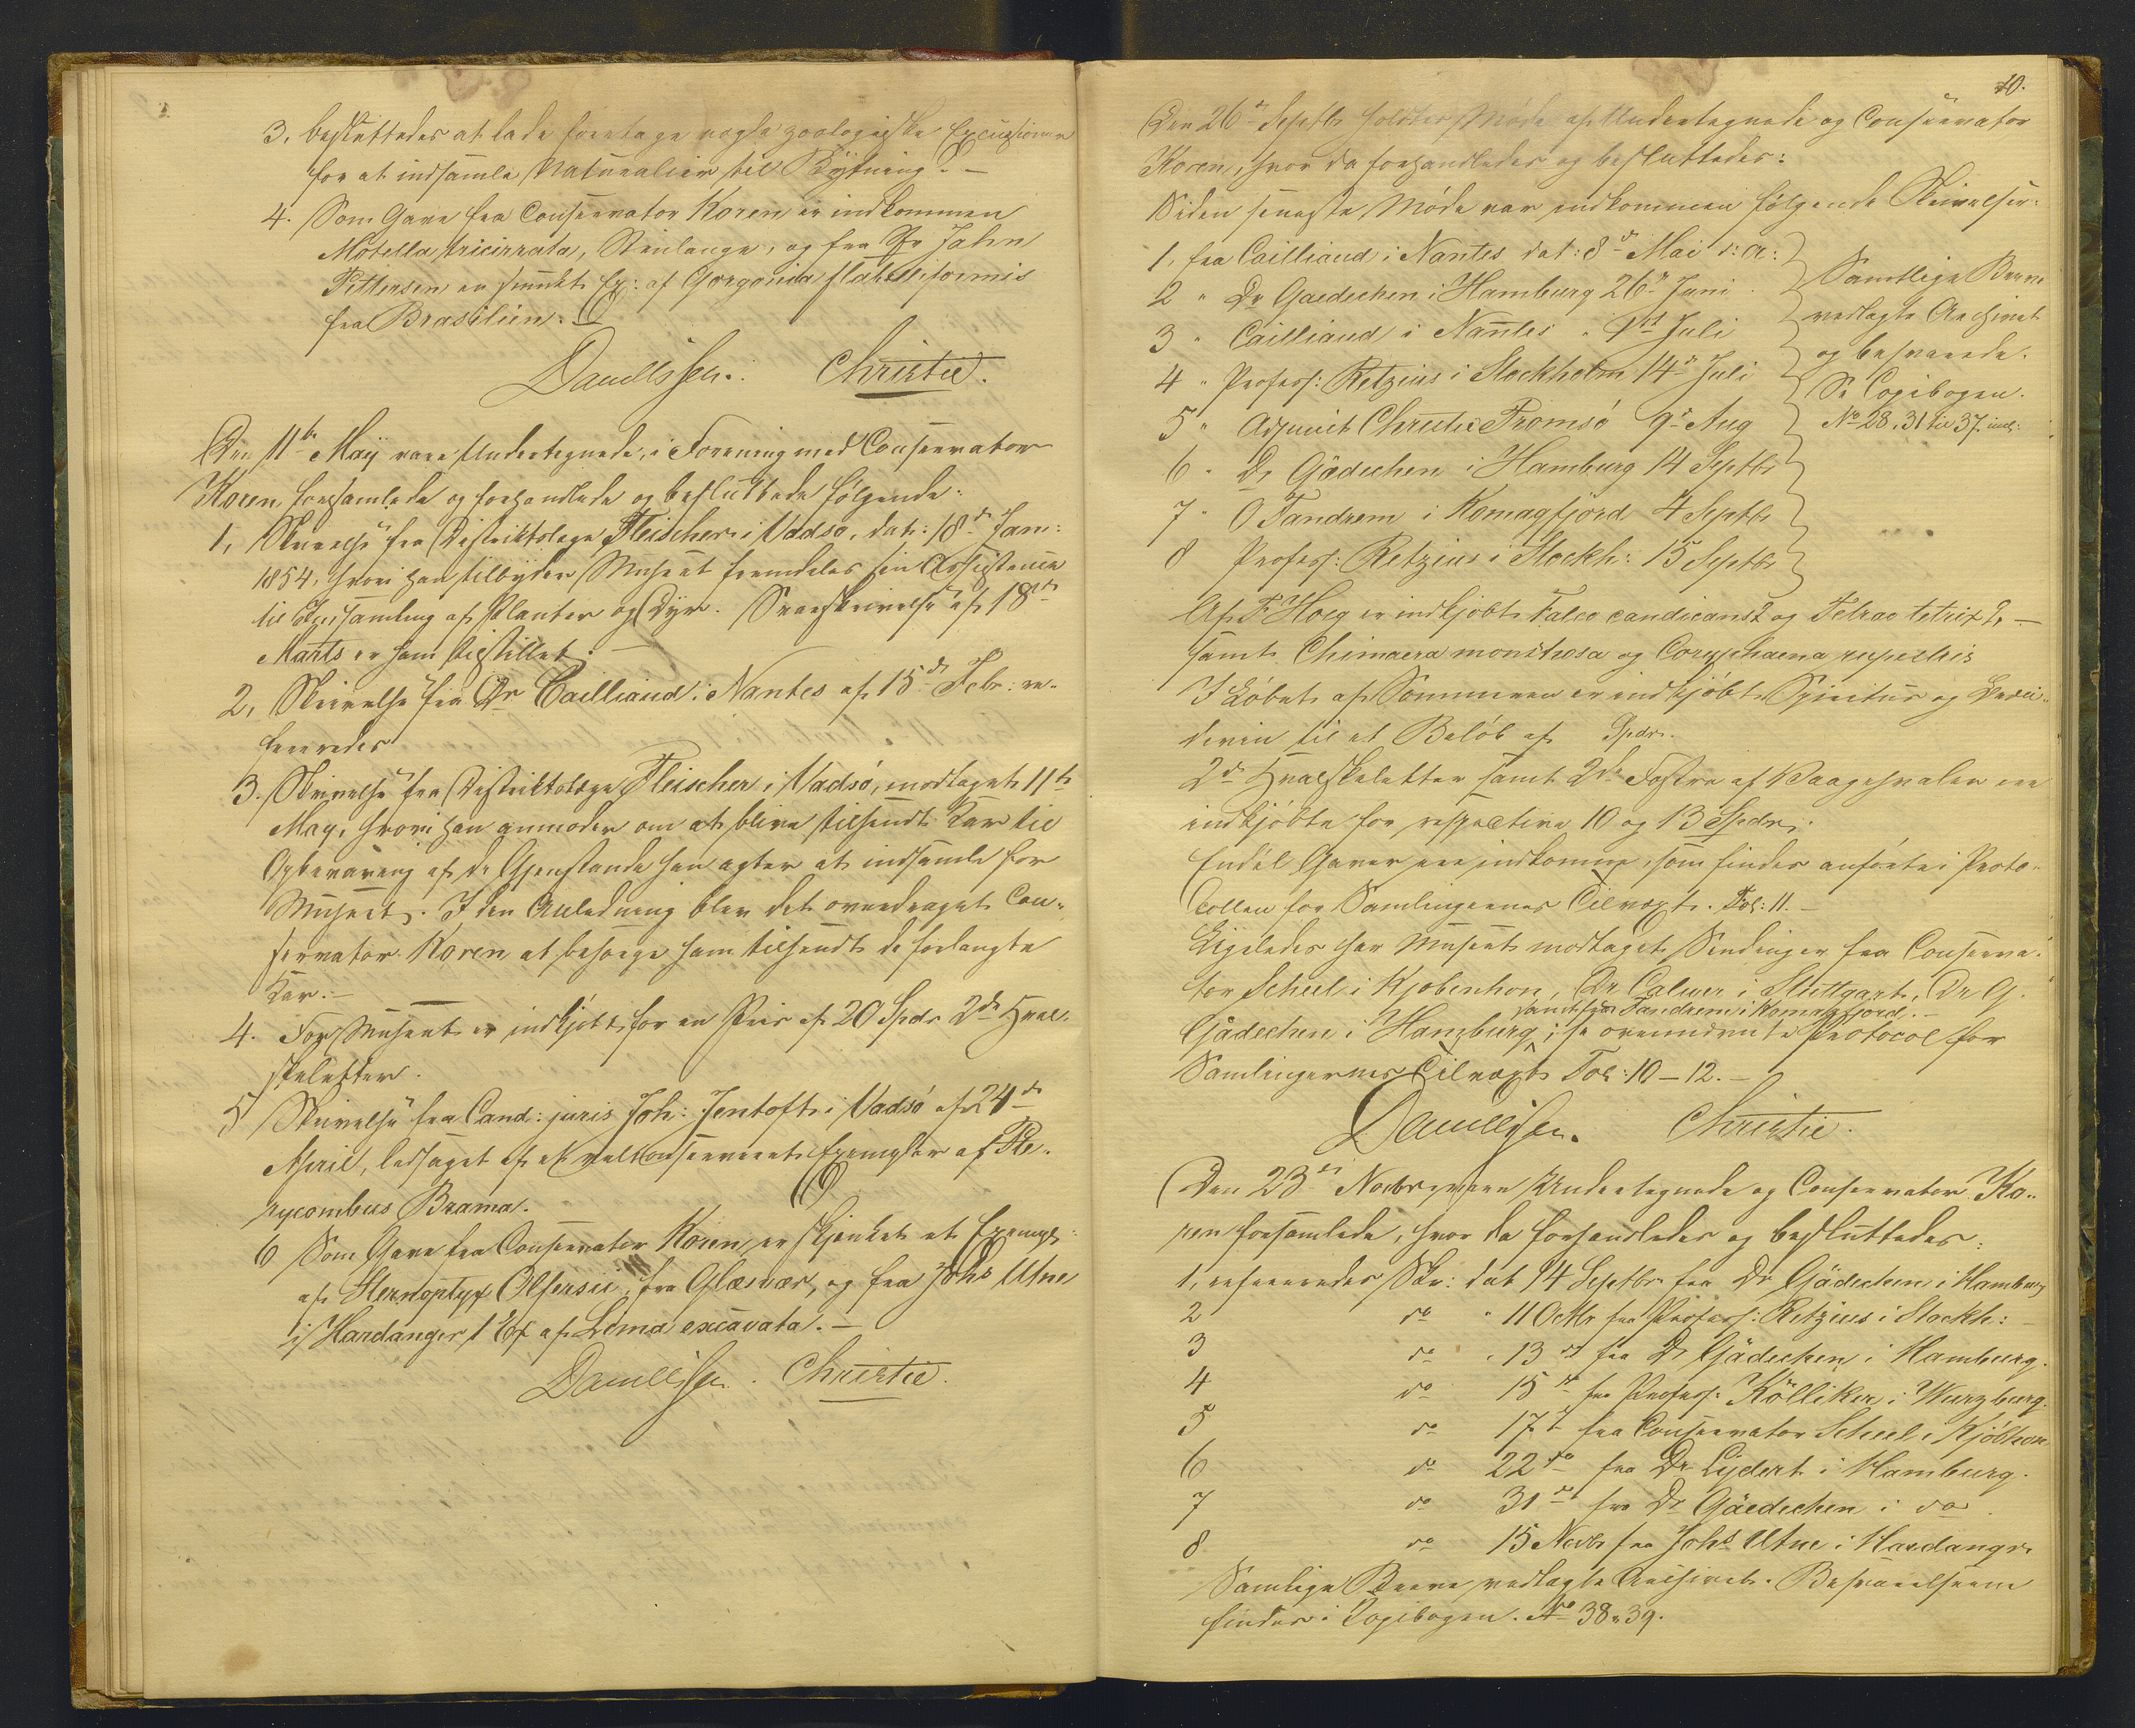 3, besluttedes at lade foretage nogle zoologiske Excursioner
for at indsamle Naturalier til Bytning. —
4. Som Gave fra Conservator Koren er indkommen
Motella tricirrata, Steenlange, og fra Hr Jahn
Pettersen en smukt Ex: af Gorgonia flabelliformis
fra Brasilien.
Danielssen. Christie.
Den 11te Maÿ vare Undertegnede, i Forening med Conservator
Koren forsamlede og forhandlede og besluttede følgende:
1, Skrivelse fra Distriktslæge Fleischer i Vadsø, dat: 18de Jan:
1854, hvori han tilbyder Museet fremdeles sin Assistance
til Indsamling af Planter og Dyr. Svarskrivelse af 18de
Marts er ham tilstillet. —
2, Skrivelse fra Dr Cailliaud i Nantes af 15de Febr: re-
fereredes
3. Skrivelse fra Distriktslæge Fleischer i Vadsø, modtaget 11te
May, hvori han anmoder om at blive tilsendt Kar til
Opbevaring af de Gjenstande han agter at indsamle for
Museet. I den Anledning blev det overdraget Con-
servator Koren at besørge ham tilsendt de forlangte
Kar. —
4. For Museet er indkjøbt for en Priis af 20 Spdr 2de Hval-
skeletter.
5 Skrivelse fra Cand: juris Joh: Jentoft i Vadsø af 24de
April, ledsaget af et velconserveret Exemplar af Pte-
rycombus Brama.
6 Som Gave fra Conservator Koren er skjenket et Exempl:
af Sternoptyx Olfersii, fra Glæsvær, og fra Johs Utne
i Hardanger 1 Ex af Lima excavata. —
Danielssen. Christie.
10.
Den 26de Septbr holdtes Møde af Undertegnede og Conservator
Koren, hvor da forhandledes og besluttedes:
Siden seneste Møde var indkommen følgende Skrivelser:
1, fra Cailliaud i Nantes dat: 8de Mai d: A:
2 " Dr Gaedechen i Hamburg 26de Juni
3 " Cailliaud i Nantes " 1ste Juli
4 " Profess: Retzius i Stockholm 14de Juli
5 " Adjunct Christie Tromsø 9de Aug
6 " Dr Gädechen i Hamburg 14 Septbr
7 " O Tandrem i Komagfjord 4 Septbr
8 Profess: Retzius i Stockh: 15 Septbr
Samtlige Breve
vedlagte Archivet
og besvarede.
Se Copibogen.
No 28, 31 til 37. incl:
Af F Hoeg er indkjøbt Falco candicans og Tetrao tetrix, —
samt Chimaera monstrosa og Coryphaena rupestris
I Løbet af Sommeren er indkjøbt Spiritus og
til et Beløb af Spdr.
2de Hvalskeletter samt 2de Fostre af Vaagehvalen ere
indkjøbte for respective 10 og 13 Spdr.
Endel Gaver ere indkomne, som findes anførte i Proto-
collen for Samlingernes Tilvæxt. Fol: 11. —
Ligeledes har Museet modtaget Sendinger fra Conserva-
tor Scheel i Kjøbenhvn, Dr Calwer i Stuttgart, Dr G.
samt fra Tandrem i Komagfjord. —
Gädechen i Hamburg; se ovennævnte Protocol for
Samlingernes Tilvæxt Fol: 10 — 12. —
Danielssen. Christie.
Den 23de Novbr vare Undertegnede og Conservator Ko-
ren forsamlede, hvor da forhandledes og besluttedes:
1, refereredes Skr: dat 14 Septbr fra Dr Gädechen i Hamburg
2 do " 11 Octbr fra Profess: Retzius i Stockh:
3 do " 13de fra Dr Gädechen i Hamburg.
4 do 15de fra Profess: Kölliker i Wurzburg.
5 do 17de fra Conservator Scheel i Kjøbhvn
6 do 22de fra Dr Lydert i Hamburg.
7 do 31te fra Dr Gäedechen i do
8 do 15 Novbr fra Johs Utne i Hardanger
Samlige Breve vedlagte Archivet. Besvarelserne
findes i Copibogen. No 38 & 39.